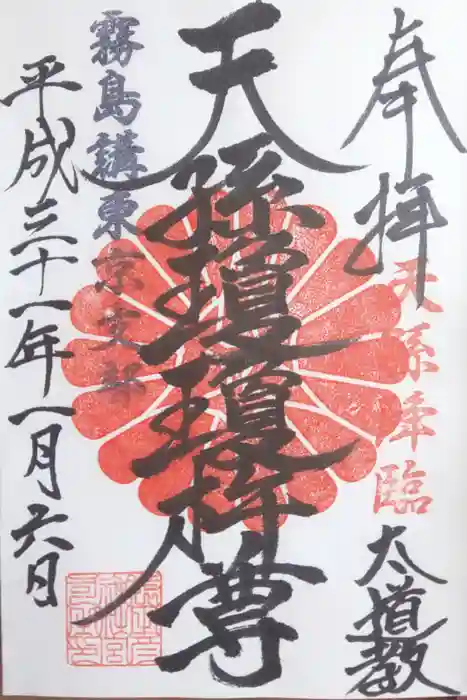 奉拝
天孫降臨
大道教
天孫瓊瓊杵尊
霧島講東京支部
平成三十一年一月六日